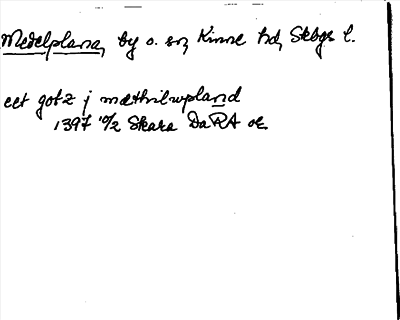 Medelplana, by o. sn, Kinne hd, Skbgs l.
eet gotz j mæthelwpland
1397 10/2 Skara DaRA or.